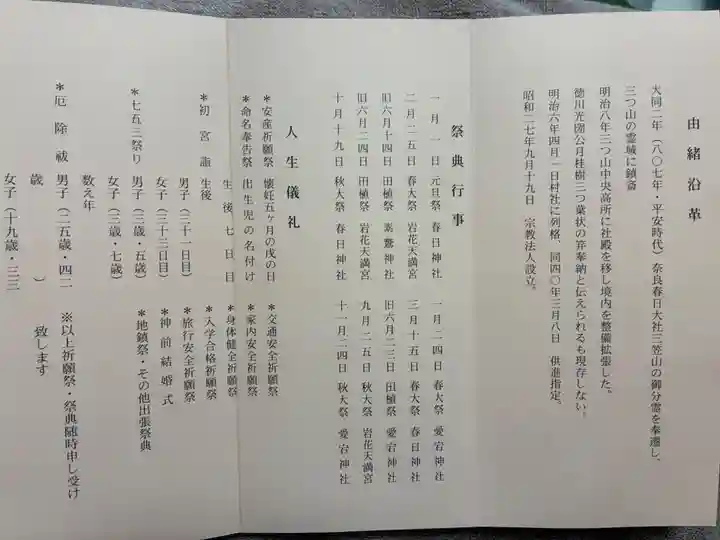 由緒沿革
大同二年(八〇七年・平安時代)奈良春日大社三笠山の御分霊を奉遷し、
三つ山の霊域に鎮斎
明治八年三つ山中央高所に社殿を移し境内を整備拡張した。
徳川光圀公月桂樹三つ葉状の笄奉納と伝えられるも現存しない。
明治六年四月一日村社に列格、同四〇年三月八日 供進指定。
昭和二七年九月十九日 宗教法人設立。
祭典行事
一月一日 元旦祭 春日神社
二月二五日 春大祭 岩花天満宮
旧六月十四日 田植祭 素鵞神社
旧六月二四日 田植祭 岩花天満宮
十月十九日 秋大祭 春日神社
一月二四日 春大祭 愛宕神社
三月十五日 春大祭 春日神社
旧六月二三日 田植祭 愛宕神社
九月二五日 秋大祭 岩花天満宮
十一月二四日 秋大祭 愛宕神社
人生儀礼
*安産祈願祭 懐妊五ヶ月の戌の日
*命名奉告祭 出生児の名付け
生後七日目
*初宮詣 生後
男子(三十一日目)
女子(三十三日目)
*七五三祭り 男子(三歳・五歳)
女子(三歳・七歳)
数え年
*厄除祓 男子(二五歳・四二
歳 )
女子(十九歳・三三
*交通安全祈願祭
*家内安全祈願祭
*身体健全祈願祭
*入学合格祈願祭
*旅行安全祈願祭
*神前結婚式
*地鎮祭・その他出張祭典
※以上祈願祭・祭典随時申し受け
致します